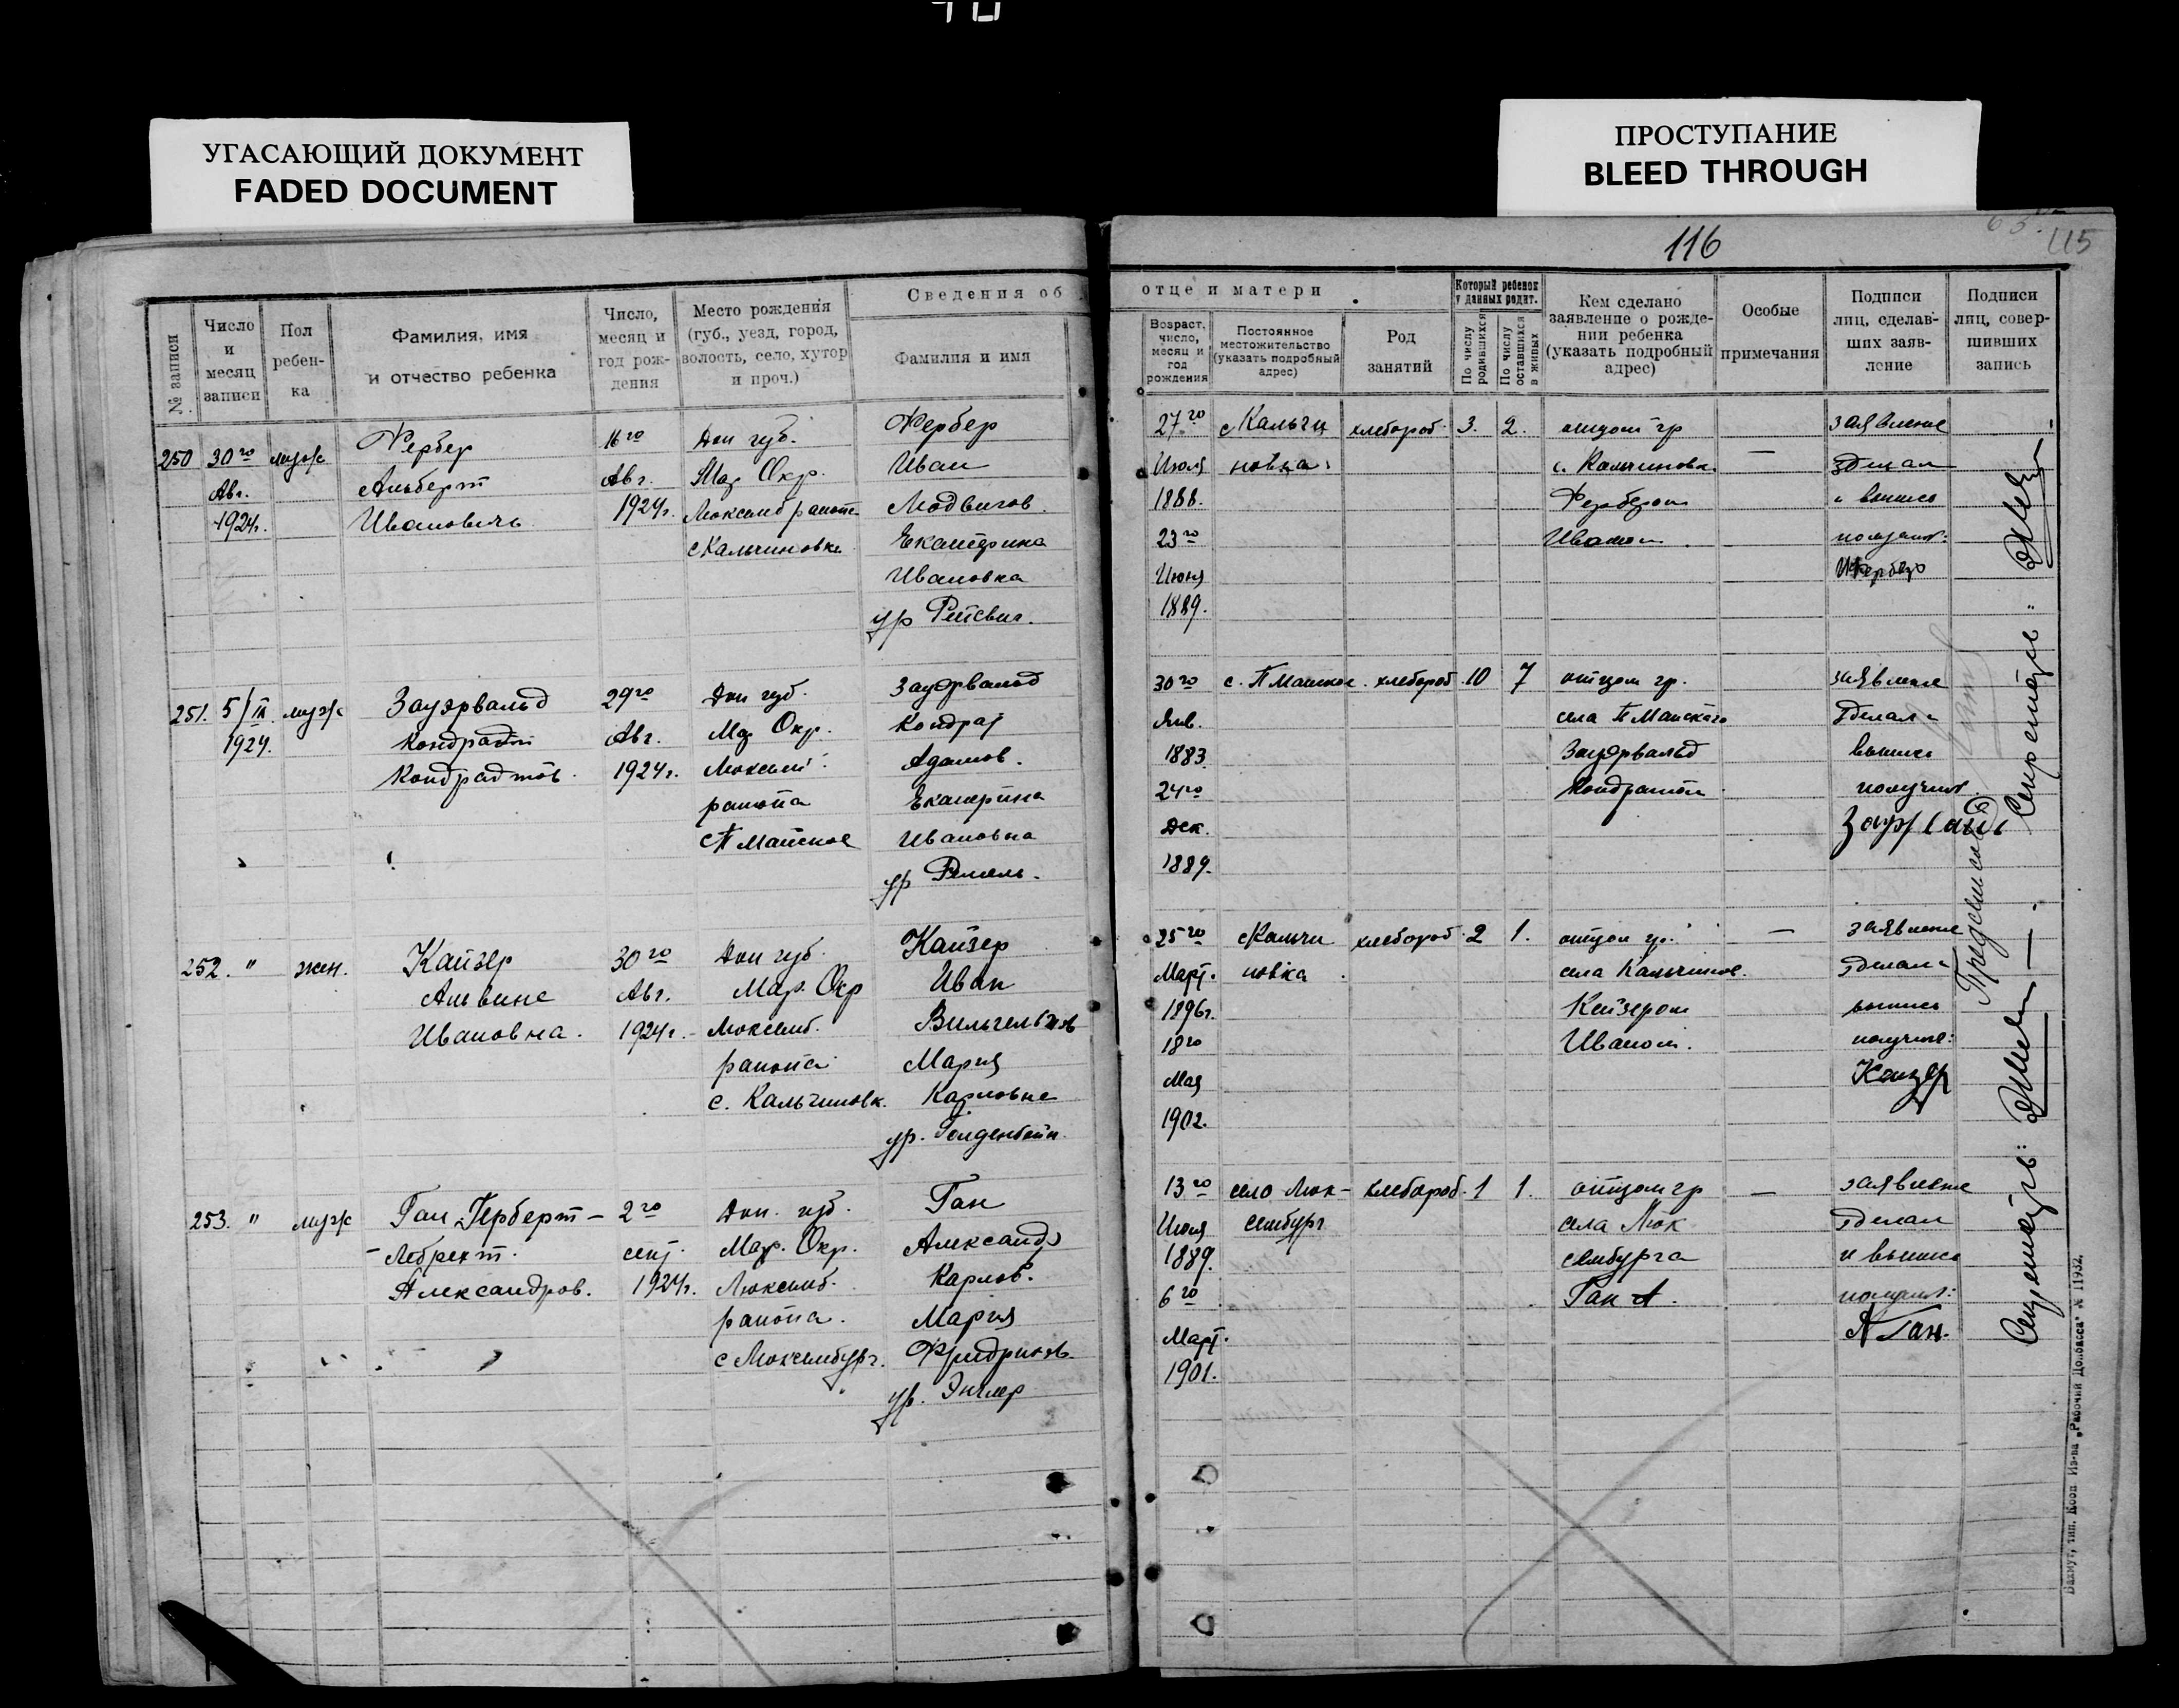 УГАСАЮЩИЙ ДОКУМЕНТ
FADED DOCUMENT
ПРОСТУПАНИЕ
BLEED THROUGH
116
115
№ записи
Число и месяц записи
Пол ребен-ка
Фамилия, имя
и отчество ребенка
Число, месяц и год рож-дения
Место рождения
(губ., уезд, город,
волость, село, хутор
и проч.)
Сведения об отце и матери
Фамилия и имя
Возраст, число, месяц и год рождения
Постоянное местожительство (указать подробный адрес)
Род занятий
Который ребенок у данных родит.
По числу родившихся
По числу оставшихся в живых
Кем сделано заявление о рожде-нии ребенка (указать подробный адрес)
Особые примечания
Подписи лиц, сделав-ших заяв-ление
Подписи лиц, совер-шивших запись
250 30го муж Фербер 16го Дон губ. Фербер
Авг. Альберт Авг. Мар Окр. Иван
1924г. Ивановичь 1924г.
с Кальчиновка Екатерина
Ивановна
ур
27го с Кальчи хлебороб. 3. 2. отцом гр — заявление
Июля новка с. Кальчиновк. зделал
1888. Фербером и выпись
23го Иваном
Июня
1889.
251. 5/IX муж Зауэрвальд 29го Дон губ. Зауэрвальд
1924. Кондратий Авг. Мар Окр. Кондрат
Кондратов. 1924г. Люксемб. Адамов.
района Екатерина
с П Майское Ивановна
ур
30го с. П Майское. хлебороб. 10 7 отцом гр. заявление
Янв. села П Майского зделал
1883 Зауэрвальд выпись
24го Кондратом получил
Дек.
1889.
252. " жен. Кайзер 30го Дон губ. Кайзер
Альвине Авг. Мар. Окр Иван
Ивановна. 1924г. Люксемб. Вильгельмов
района Мария
с. Кальчиновк. Карловна
ур.
25го с Кальчи хлебороб. 2 1. отцом гр. — заявление
Март. новка села Кальчинов. зделал
1896г. Кейзером выпись
18го Иваном. получил:
Мая Кайзер
1902.
253. " муж Ган Герберт- 2го Дон. губ. Ган
-Лебрехт. сент. Мар. Окр. Александр
Александров. 1924г. Люксемб. Карлов.
района. Мария
с Люксембург. Фридрихов.
ур. Энглер
13го село Люк- хлебороб. 1 1. отцом гр — заявление
Июля сембург села Люк зделал
1889. сембурга и выпись
6го Ган А.
Март. А Ган.
1901.
Секретарь:
Председатель
Секретарь
Бахмут, тип. Кооп Из-ва „Рабочий Донбасса" № 11932.